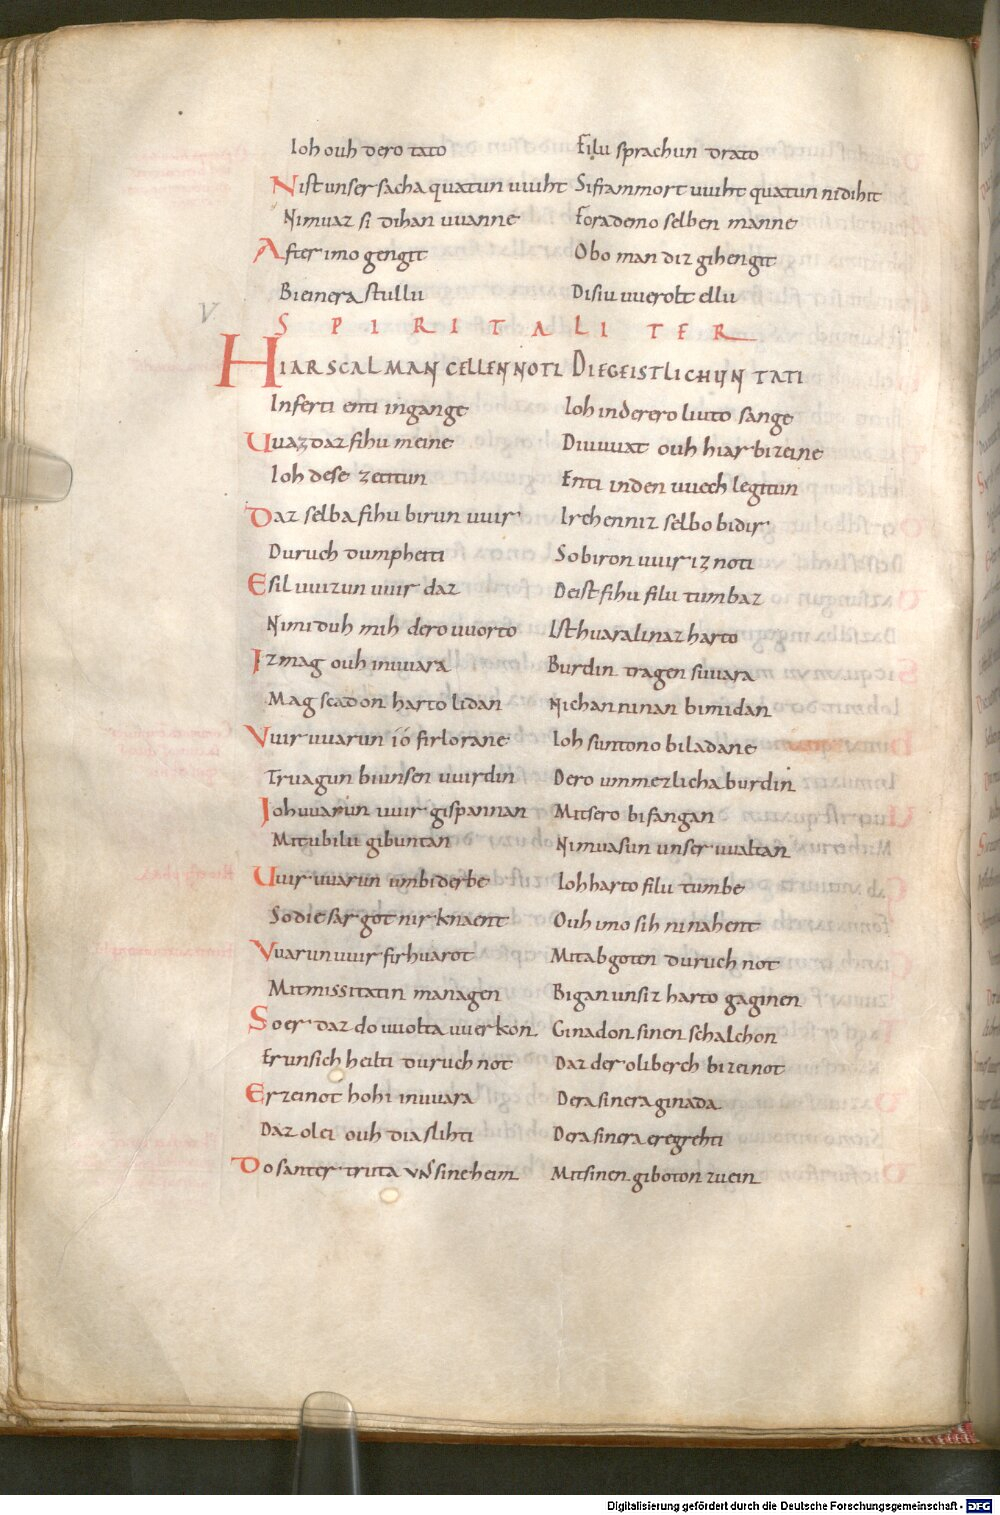 Ioh ouh dero tato Filu sprachun drato
Nist unser sacha quatun uuiht Siframmort uuiht quatun nidihit
Nimuaz si dihan uuanne Forademo selben manne
After imo gengit Obo man diz gihengit
Bieinera stullu Disiu uuerolt ellu
V
SPIRITALITER
HIAR SCAL MAN CELLEN NOTI DIE GEISTLICHUN TATI
Inferti enti ingange Ioh inderero liuto sange
Uuaz daz fihu meine Diu uuat ouh hiar bizeine
Ioh dese zettitun Enti inden uuech legitun
Daz selba fihu birun uuir Irchenniz selbo bidir
Duruch dumpheiti So biron uuir iz noti
Esil uuizun uuir daz Deist fihu filu tumbaz
Nimiduh mih dero uuorto Ist huaralinaz harto
Iz mag ouh inuuara Burdin tragen suuara
Mag scadon harto lidan Nichan ninan bimidan
Vuir uuarun io firlorane Ioh suntono biladane
Truagun biunsen uuirdin Dero ummezlicha burdin
Ioh uuarun uuir gispannan Mit sero bifangan
Mit ubilu gibuntan Nimuasun unser uualtan
Uuir uuarun umbiderbe Ioh harto filu tumbe
Sodie sar got nir knaent Ouh imo sih ninahent
Vuarun uuir firhuarot Mit abgoten duruch not
Mit missitatin managen Bigan unsiz harto gaginen
So er daz do uuolta uuerkon Ginadon sinen schalchon
Er unsich heilti duruch not Daz der oliberch bizeinot
Er zeinot hohi inuuara Dera sinera ginada
Daz olei ouh dia slihti Dera sinera eregrehti
Do santer truta uns sine heim Mit sinen giboton zuein
Digitalisierung gefördert durch die Deutsche Forschungsgemeinschaft - DFG